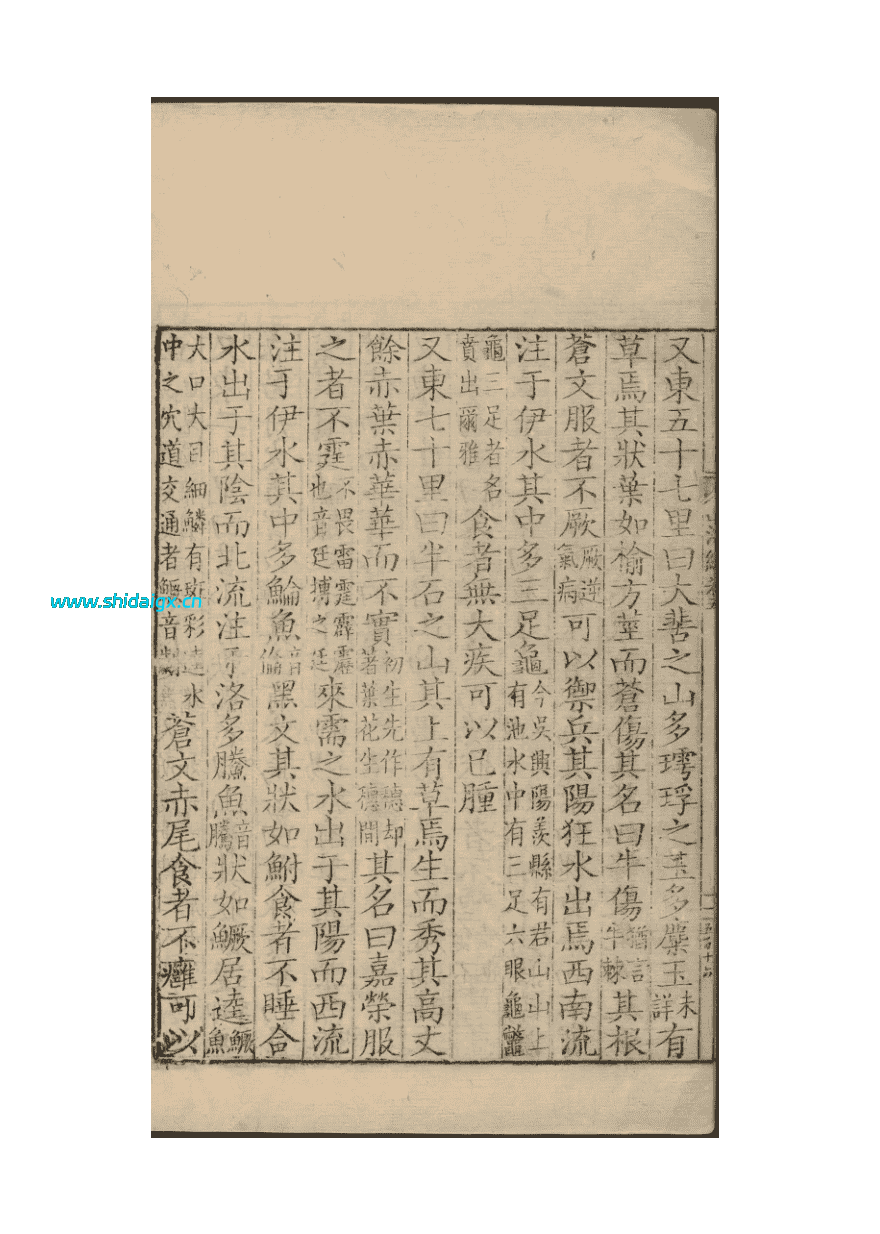 又東五十七里曰大𩇵之山多㻬琈之玉多麋玉未詳有
草焉其狀葉如榆方莖而蒼傷其名曰牛傷猶言牛棘其根
蒼文服者不厥厥逆氣病可以禦兵其陽狂水出焉西南流
注于伊水其中多三足龜今吳興陽羨縣有君山山上有池水中有三足六眼龜鼈
龜三足者名賁出爾雅食者無大疾可以已腫
又東七十里曰半石之山其上有草焉生而秀其高丈
餘赤葉赤華華而不實初生先作穗却著葉花生穗間其名曰嘉榮服
之者不霆不畏雷霆霹靂也音廷搏之廷來需之水出于其陽而西流
注于伊水其中多鯩魚音倫黑文其狀如鮒食者不睡合
水出于其陰而北流注于洛多䲢魚音騰狀如鱖居逵鱖魚
大口大目細鱗有斑彩逵水中之穴道交通者鱖音蒼文赤尾食者不癰可以
www.shidaigx.cn